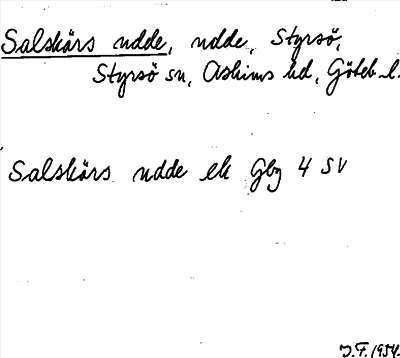 Salskärs udde, udde, Styrsö,
Styrsö sn, Askims hd, Göteb. l.
Salskärs udde ek Gbg 4 SV
J.F. 1954.